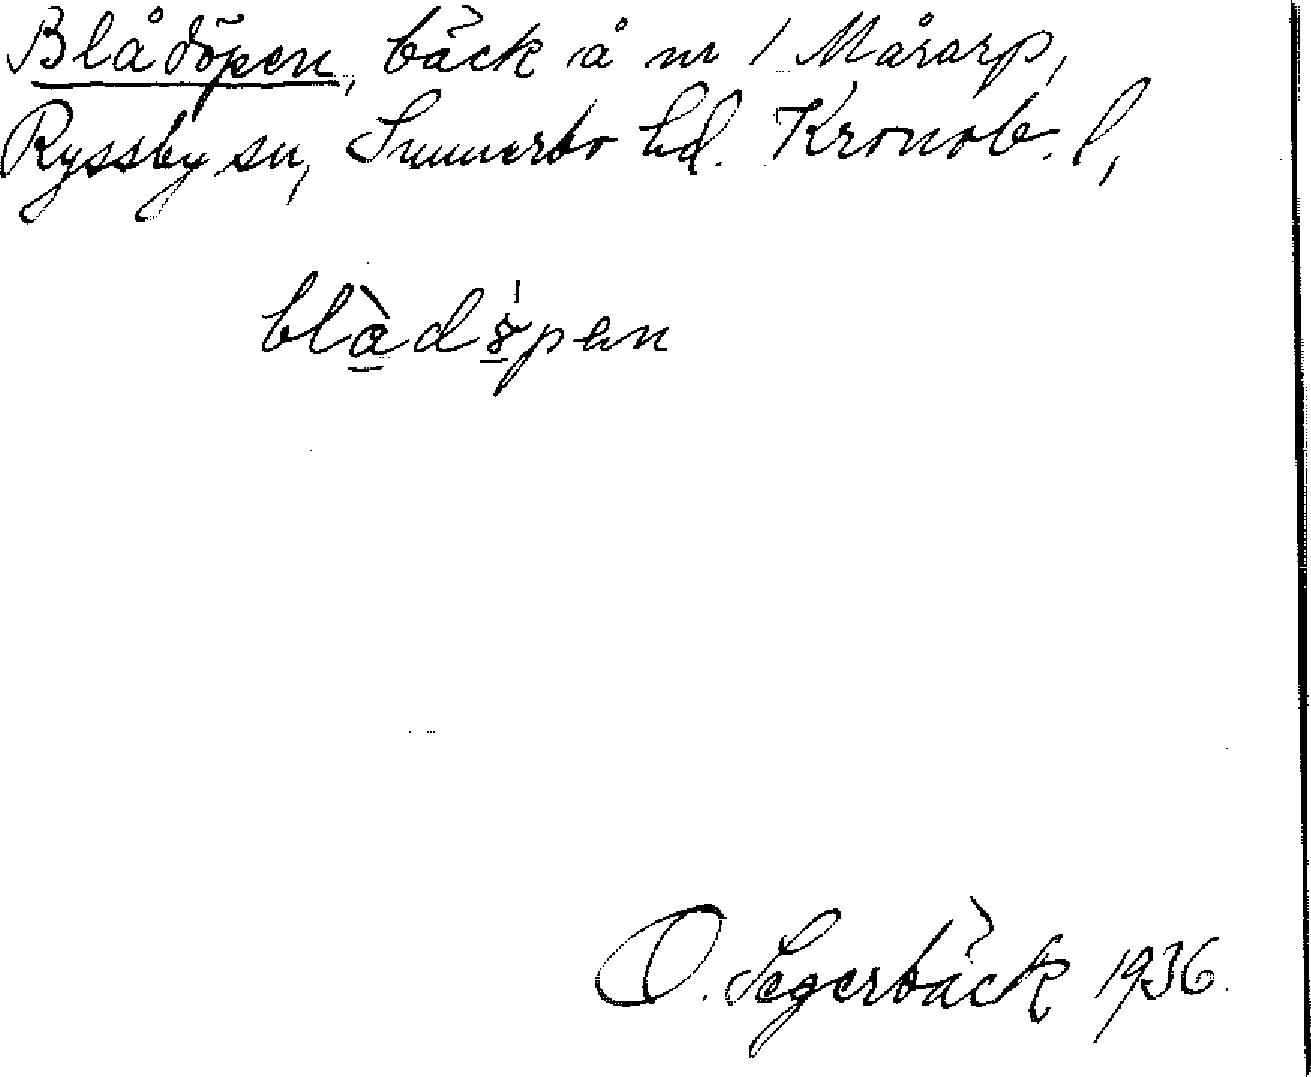 Blådöpen, bäck å nr 1 Målarp,
Ryssby sn, Sunnerbo hd. Kronob. l,
blàdö́pen
O. Segerbäck 1936.